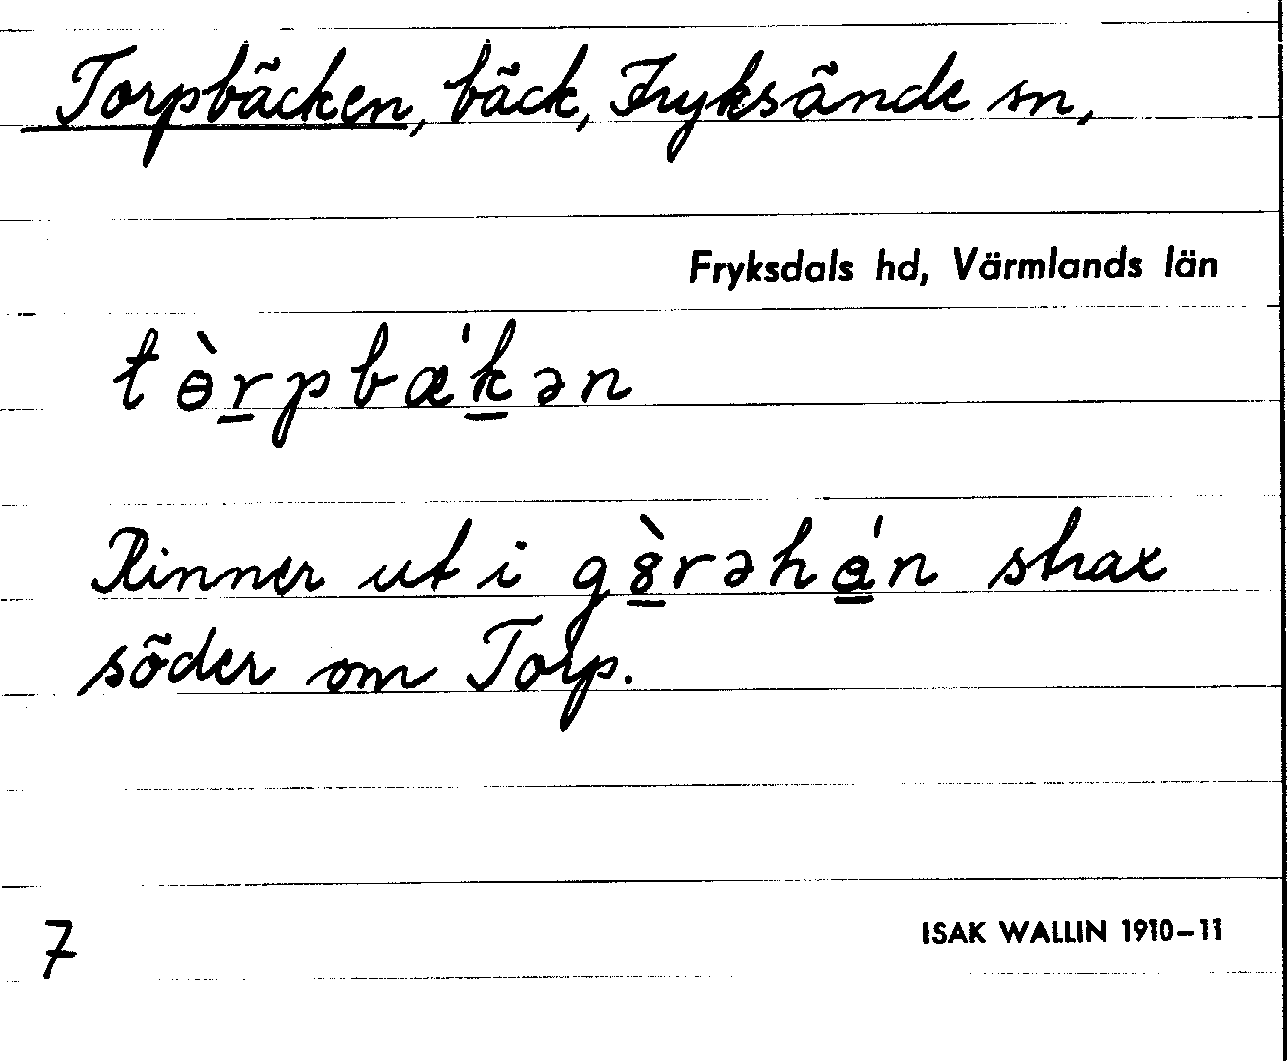 Torpbäcken, bäck, Fryksände sn,
Fryksdals hd, Värmlands län
tɵ̀r̲pbǽk̲ən
Rinner ut i g8̲̀rəhá̲n strax
söder om Torp.
7
ISAK WALLIN 1910–11